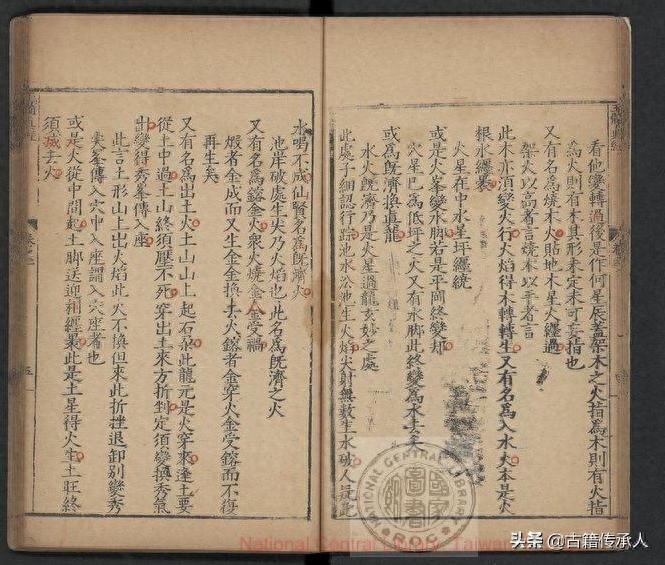 看他變轉過後是作何星辰蓋架木之火指為木則有火指
為火則有木其形未定未可妄指也
又有名為燒木火貼地木星火纏過
架火以高者言燒木以平者言
此木亦須變火行火焰得木轉轉生又有名為入水火本是火
根水纏裹
火星在中水星坪纏繞
或是火峯變水脚若是平岡終變却
火星巳為低坪之火又有水脚此終變為水去矣
或為既濟換真龍
水火既濟乃是火星過龍玄妙之處
此處子細認行踪池水沿池生火焰尖射無數生水破人
水喝不成仙賢名為既濟火
池岸破處生尖乃火焰也此名為既濟之火
又有名為鎔金火衆火燒金金受禍
煅者金成而又生金金換去火鎔者金穿火金受鎔而不復
再生矣
又有名為出土火土山山上起石
此龍元是火穿來逢土要
從土中過土山終須壓不死穿出土來方折判定須變換秀氣
出變得秀峯傳入座
此言土形山上出火焰此火不慎但來此折挫退卸別變秀
尖峯傳入穴中入座謂入穴座者也
或是火從中間起土脚送迎利纏裹此是土星得火生土旺終
須減去火
卷之二
五
國家圖書館
NATIONAL CENTRAL LIBRARY
ROC
National Central Library, Taiwan
头条 @古籍传承人